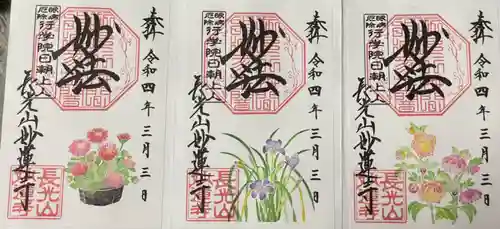 奉拝 令和四年三月三日
妙法
眼病
厄除 行学院日朝上人
長光山妙蓮寺
長光山
奉拝 令和四年三月三日
妙法
眼病
厄除 行学院日朝上人
長光山妙蓮寺
長光山
奉拝 令和四年三月三日
妙法
眼病
厄除 行学院日朝上人
長光山妙蓮寺
長光山